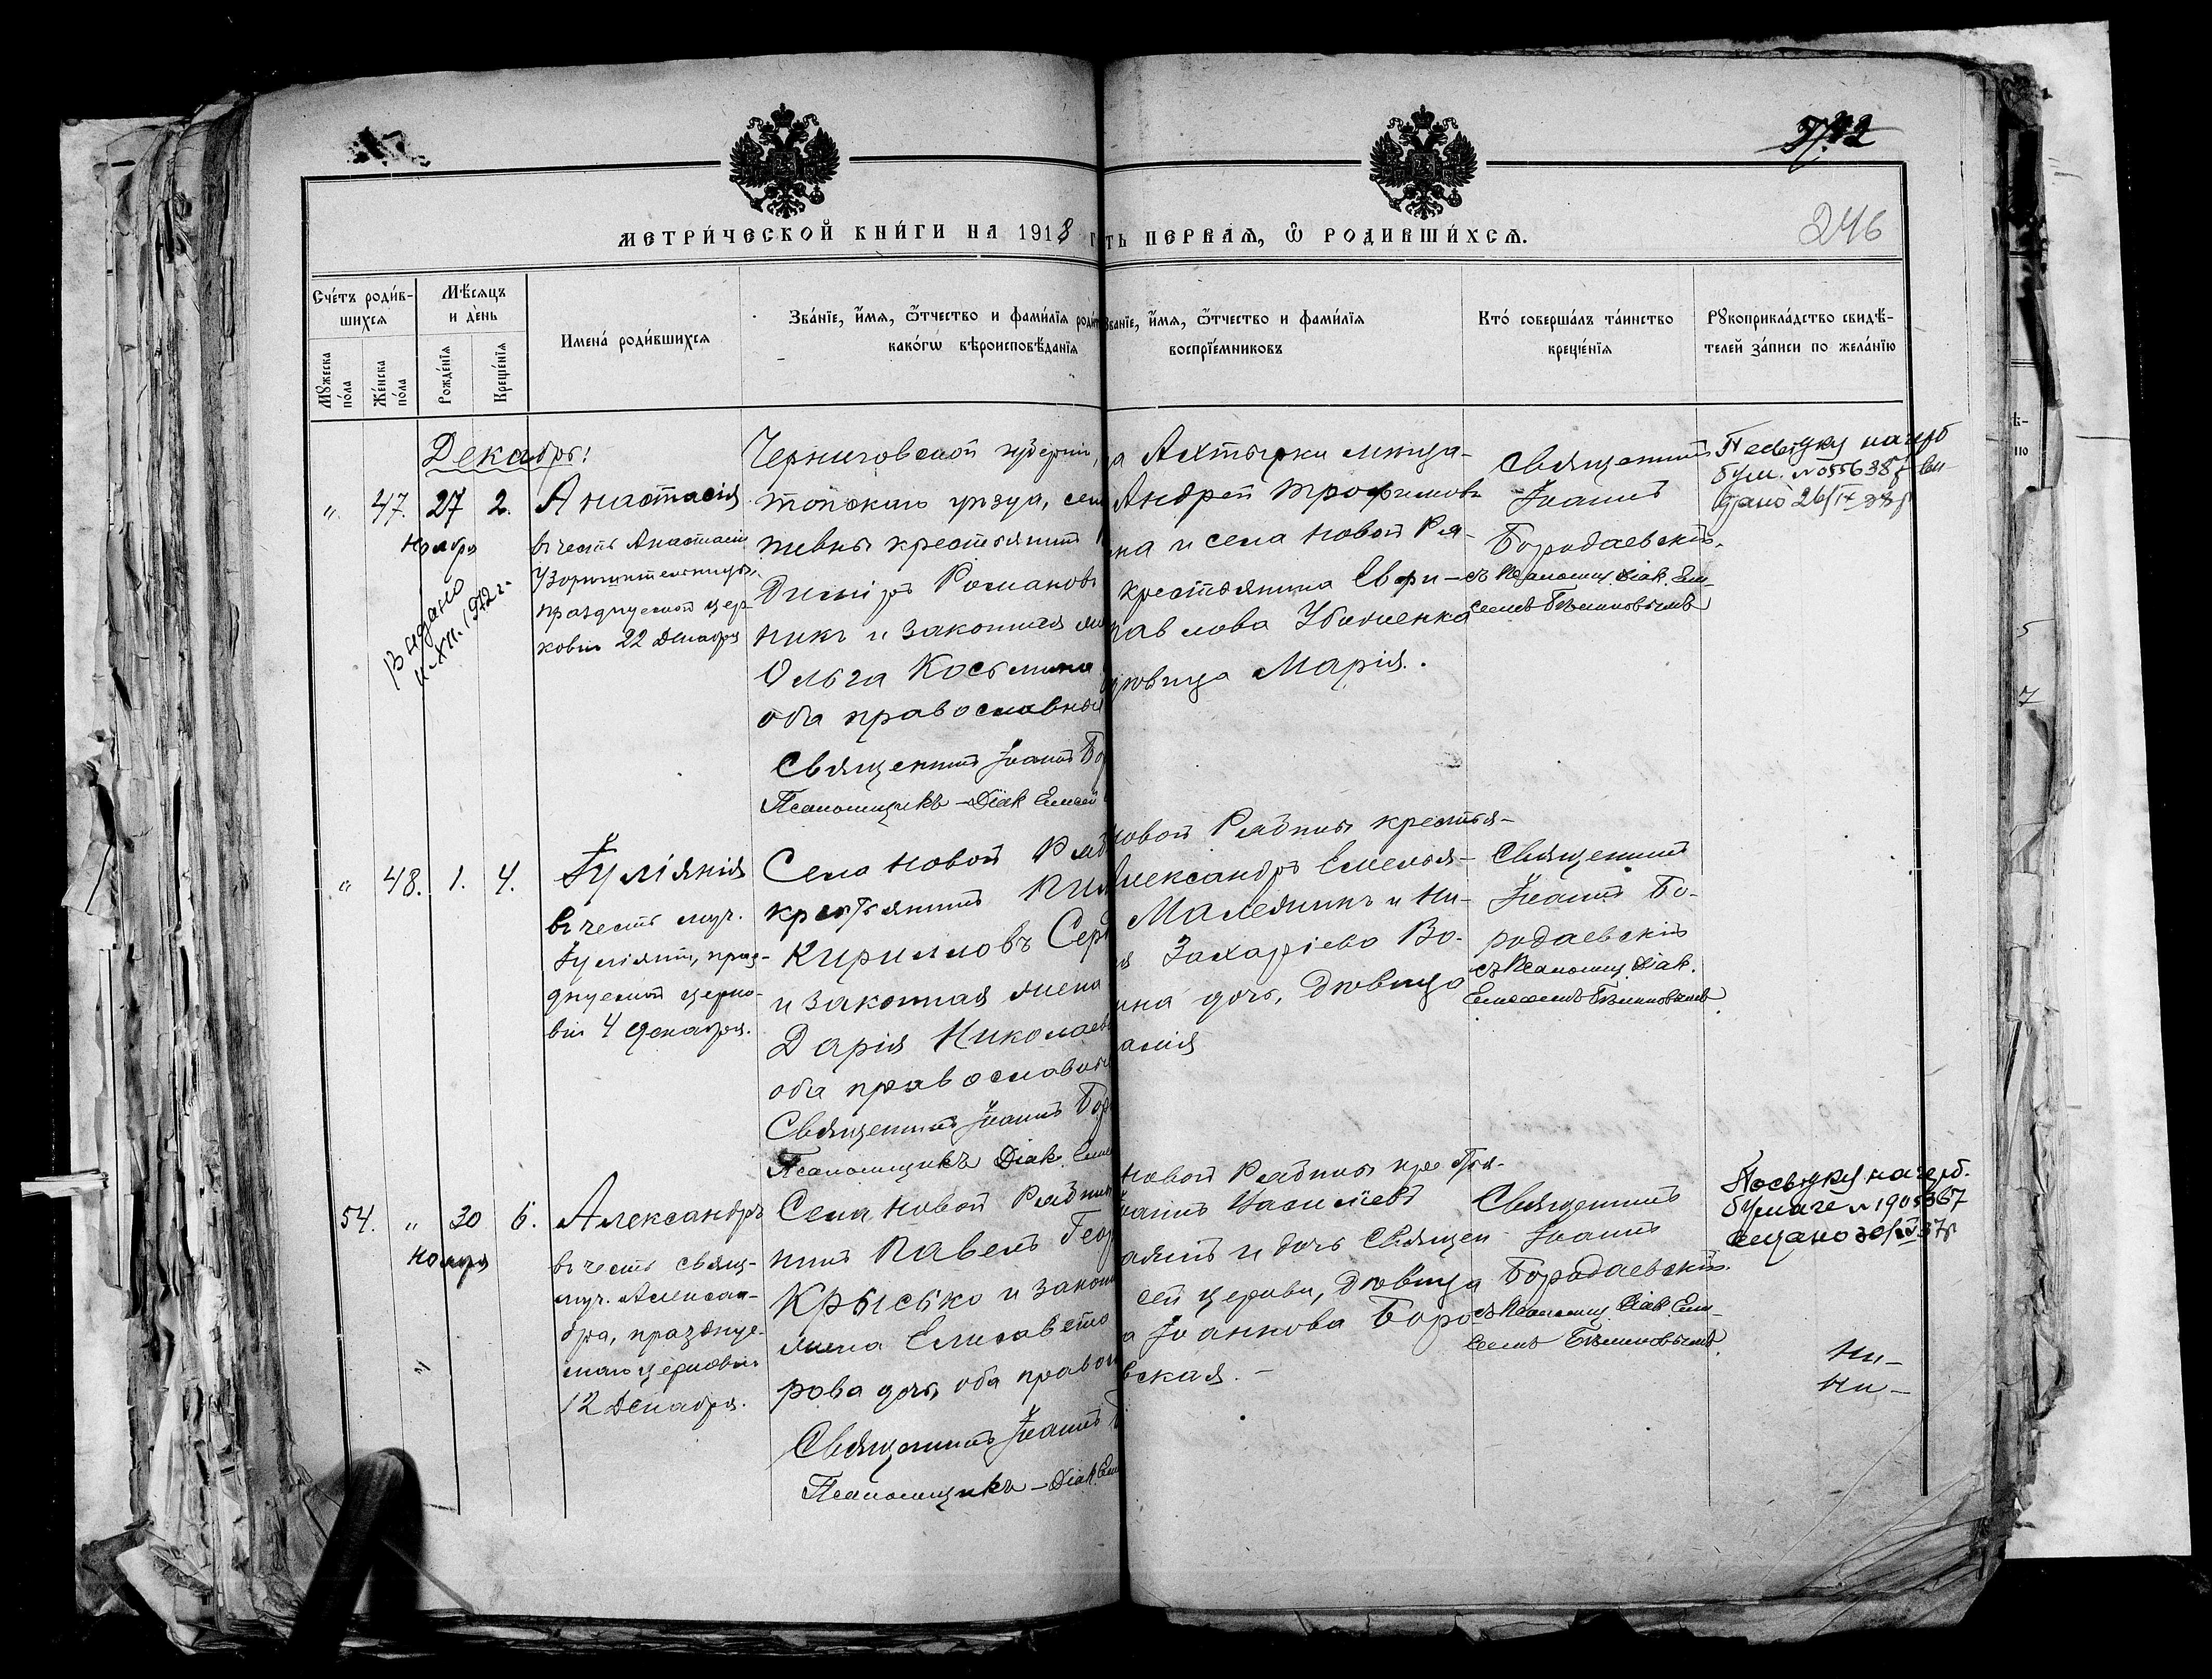 246
МЕТРИ́ЧЕСКОЙ КНИ́ГИ НА 1918 Г
ТЬ ПЕРВАЯ, Ѡ РОДИВШИ́ХСЯ.
Сче́тъ роди́в-
шихся
Мꙋжеска
по́ла
Же́нска
по́ла
Мѣсяцъ
и де́нь
Рожде́нїя
Креще́нїя
Имена́ роди́вшихся
Зва́нїе, и́мя, ѻ҆́тчество и фами́лїя роди
како́гѡ вѣроисповѣ́данїя
Зва́нїе, и́мя, ѻ҆́тчество и фами́лїя
воспрїе́мниковъ
Кто́ соверша́лъ та́инство
креще́нїя
Рꙋкоприкла́дство свидѣ́-
телей за́писи по жела́нїю
Декабрь:
" 47. 27 2.
Ноября
Выдано
1972 г.
Анастасія
въ честь Анастасіи
Узорѣшительницы,
празднуемой цер-
ковію 22 Декабря
Черниговской губерніи,
топскаго уѣзда, сел
тевки крестьянинъ
Димитрій Романовъ
никъ и законная же
Ольга Косьмина
оба православные
Священникъ Іоаннъ Бо
Псаломщикъ – Діак. Елисей
а Ахтырки мѣща-
Андрей Трофимовъ
на и села Новой Ря-
крестьянина Евфи-
Павлова Убийненка
дѣвица Марія.
Священникъ
Іоаннъ
Бородаевскій
съ Псаломщ. Діак. Ели-
сеемъ
Посвідку на герб
бум. № 055638 ви-
дано 26/IX 38 р
" 48. 1. 4.
Іуліанія
въ честь муч.
Іуліаніи, праз-
днуемой церко-
вію 4 Декабря.
Села Новой Ряб
крестьянинъ
Кирилловъ Сер
и законная жена
Дарія Николаев
оба православные
Священникъ Іоаннъ Бор
Псаломщикъ Діак. Елис
Новой Рябины крестья-
Александръ Емелья-
Малехинъ и Ни-
Захаріева Во-
ина дочь, дѣвица
Священникъ
Іоаннъ Бо-
родаевскій
съ Псаломщ. Діак.
Елисеемъ
54. " 30 6.
Ноября
"
Александръ
въ честь свящ-
муч. Алексан-
дра, празднуе-
маго церковію
12 Декабря.
Села Новой Рябины
нинъ Павелъ Геор
Крысько и закон
жена Елисавета
рова дочь, оба право
Священникъ Іоаннъ
Псаломщикъ – Діак. Ели
Новой Рябины крестья-
Іоаннъ
и дочь Священ-
сей церкви, дѣвица
Іоаннова Боро-
вская. –
Священникъ
Іоаннъ
Бородаевскій.
съ Псаломщ. Діак. Ели-
сеемъ
Посвідку на герб.
бумаге № 1905367
видано 30/ 37 р